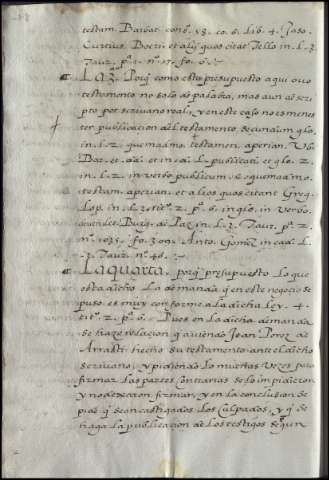 testam. Barbat. cons. 58. co. 6. lib. 4. Jaso.
Curtius. Docri. et alij quos citat Tello in. l. 3.
Taur. p. 1. nu. 17. fo. 6.
La 3ª. Porq̃ como esta presupuesto aqui ouo
testamento no solo de palabra, mas aun ab scri
pto por scriuano real, y en este caso no es menes
ter publicacion del testamento secundum glo.
in. l. 2. quemadmo. testamen. aperian. Vbi
Bar. et. oẽs. et in ca. l. publicati. et glo. 2.
in. l. 2. in verbo publicum. C. quemadmo.
testam. aperian. et alios quos citant Greg.
Lop. in. l. 2. tit. 2. p. 6. in glo. in verbo.
Burg. de Paz in. l. 3. Taur. p. 2.
nu. 1031. fo. 309. Anto. Gomez in cad. l.
3. Taur. nu. 46.
La quarta. porq̃ presupuesto lo que
esta dicho la demanda q̃ en este negocio se
puso es muy conforme a la dicha ley. 4.
tit. 2. p. 6. Pues en la dicha demanda
se haze relacion q̃ auiendo Joan Perez de
Arrasti. hecho su testamento ante el dicho
scriuano, y pidiendo lo muchas vezes para
firmar las partes contrarias se lo impidieron
y no dexaron firmar, y en la conclusion se
pide q̃ sean castigados los culpados, y q̃ se
haga la publicacion de los testigos segun